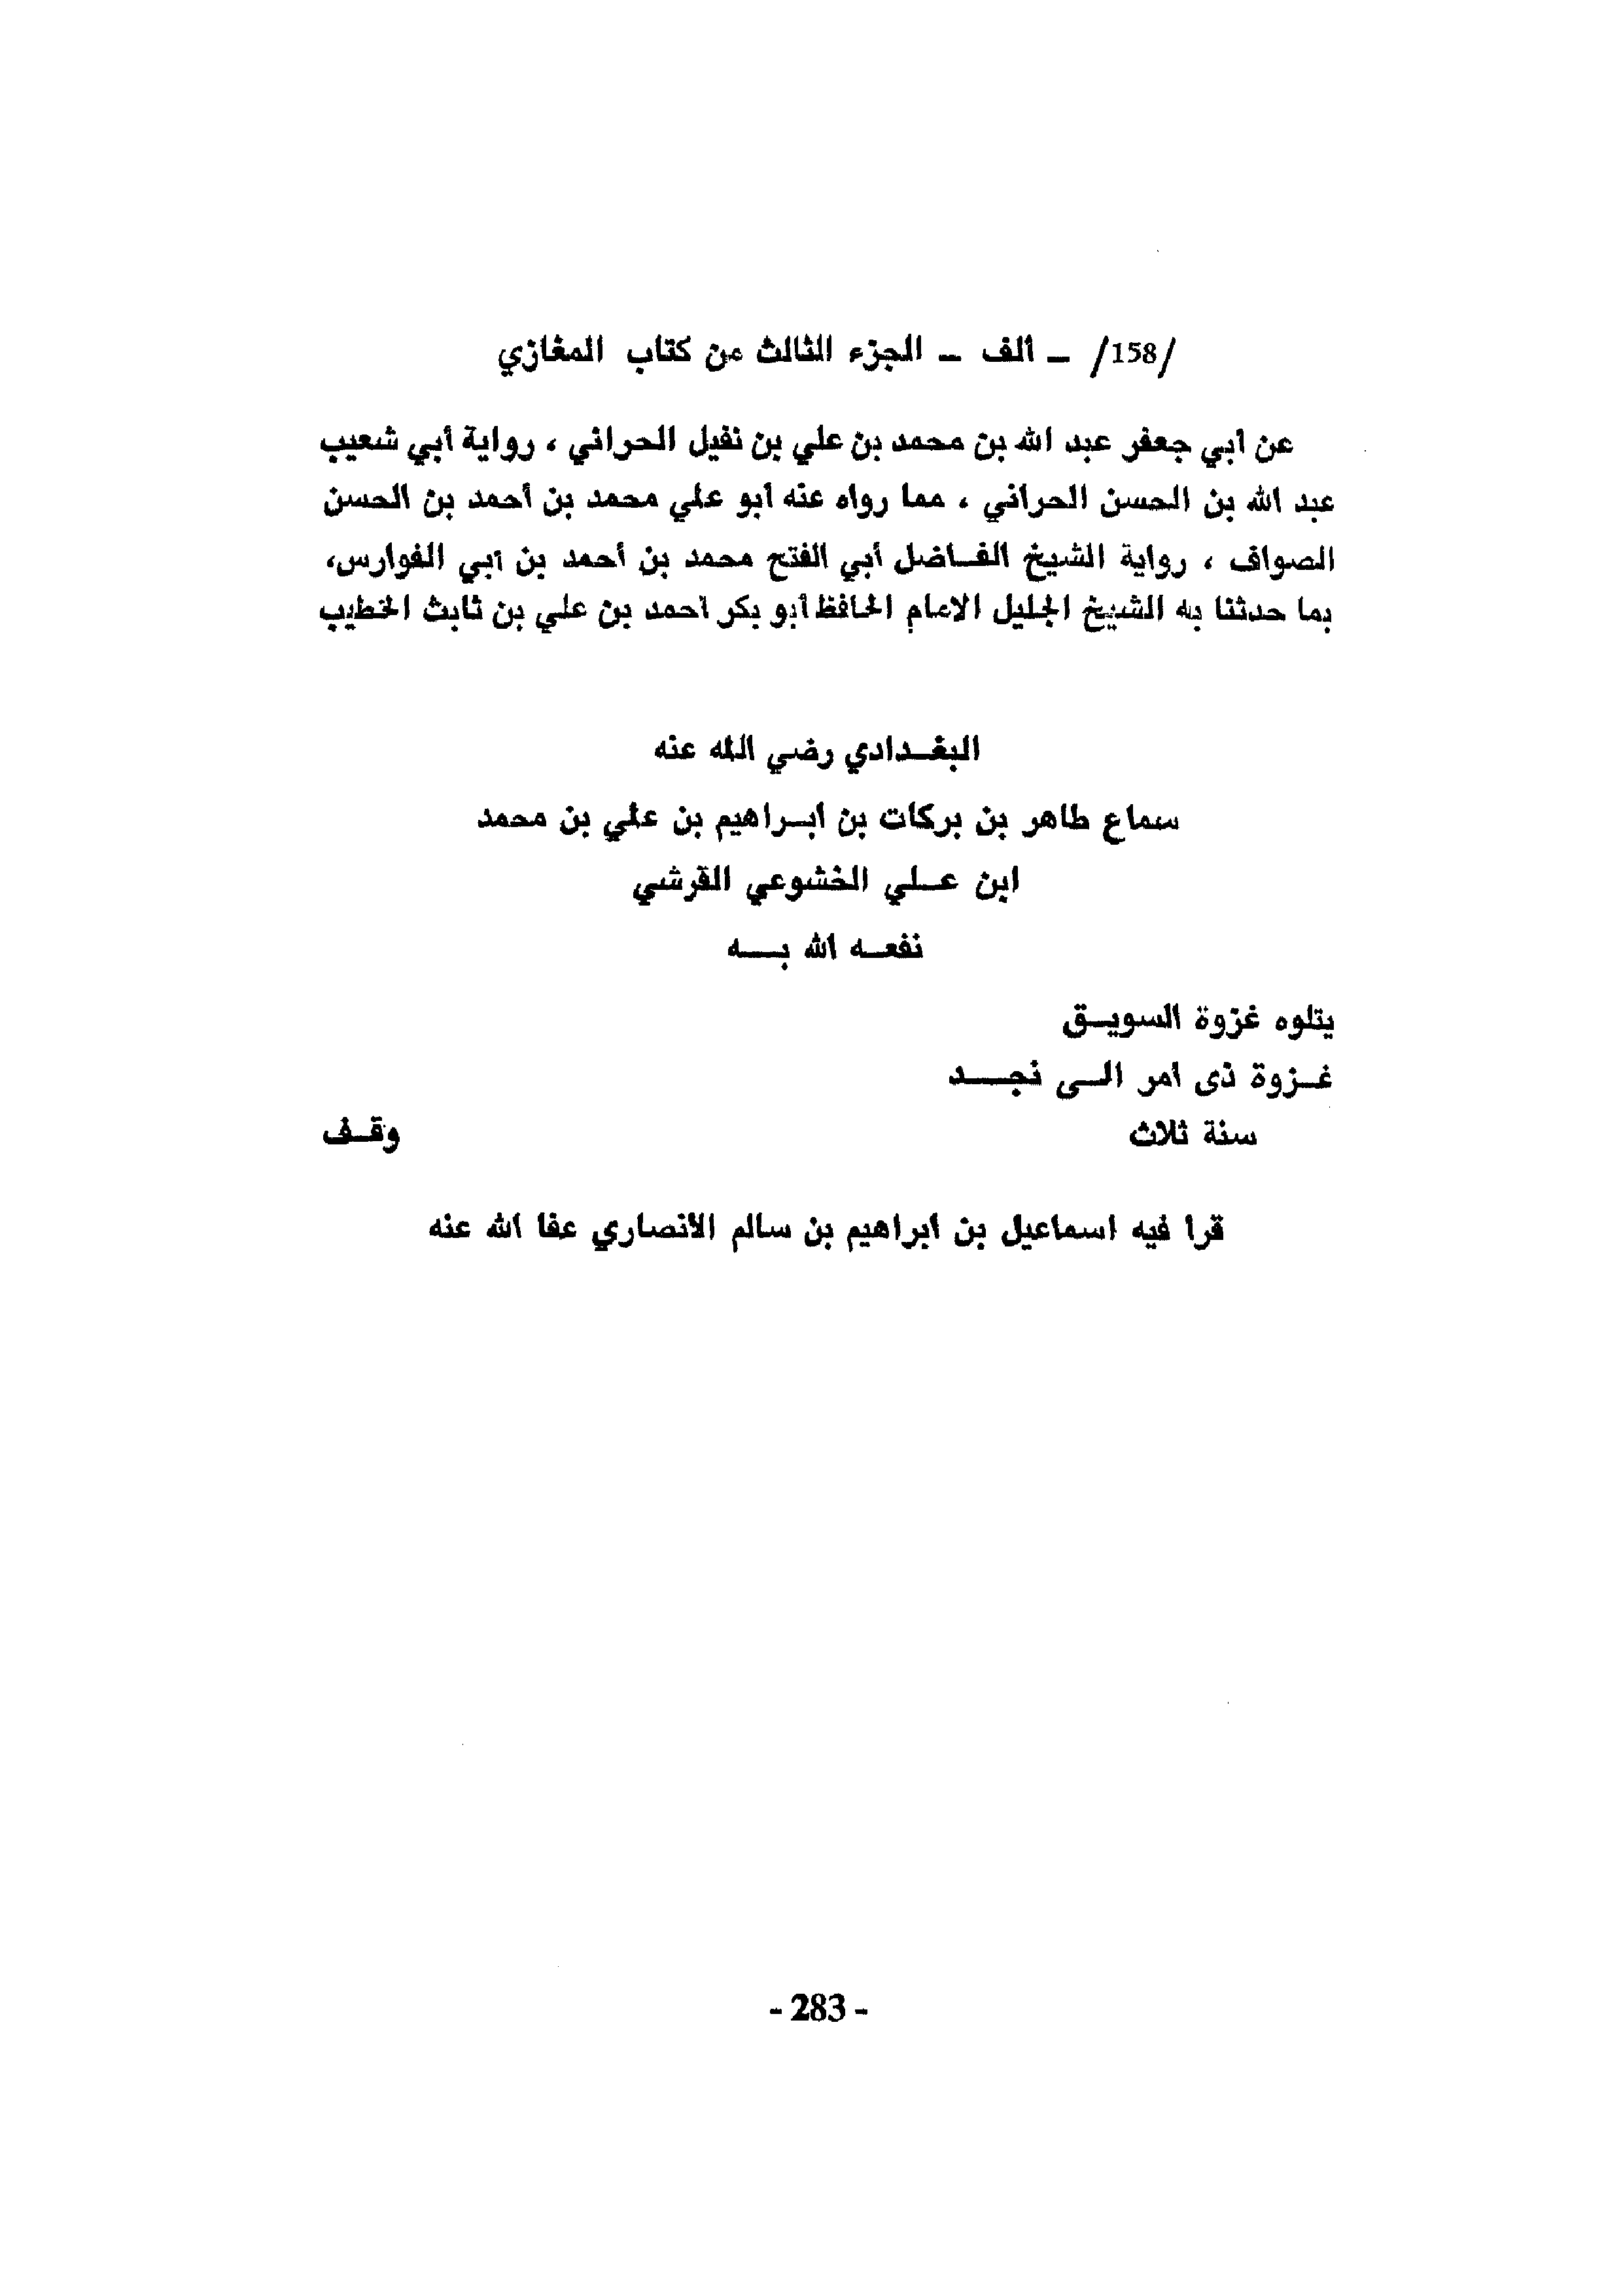 /158/ – ألف – الجزء الثالث من كتاب المغازي
عن أبي جعفر عبد الله بن محمد بن علي بن نفيل الحراني ، رواية أبي شعيب
عبد الله بن الحسن الحراني ، مما رواه عنه أبو علي محمد بن أحمد بن الحسن
الصواف ، رواية الشيخ الفاضل أبي الفتح محمد بن أحمد بن أبي الفوارس،
بما حدثنا به الشيخ الجليل الامام الحافظ أبو بكر أحمد بن علي بن ثابث الخطيب
البغدادي رضي الله عنه
سماع طاهر بن بركات بن ابراهيم بن علي بن محمد
ابن علي الخشوعي القرشي
نفعه الله به
يتلوه غزوة السويق
غزوة ذى أمر الى نجد
سنة ثلاث وقف
قرا فيه اسماعيل بن ابراهيم بن سالم الانصاري عفا الله عنه
- 283 -